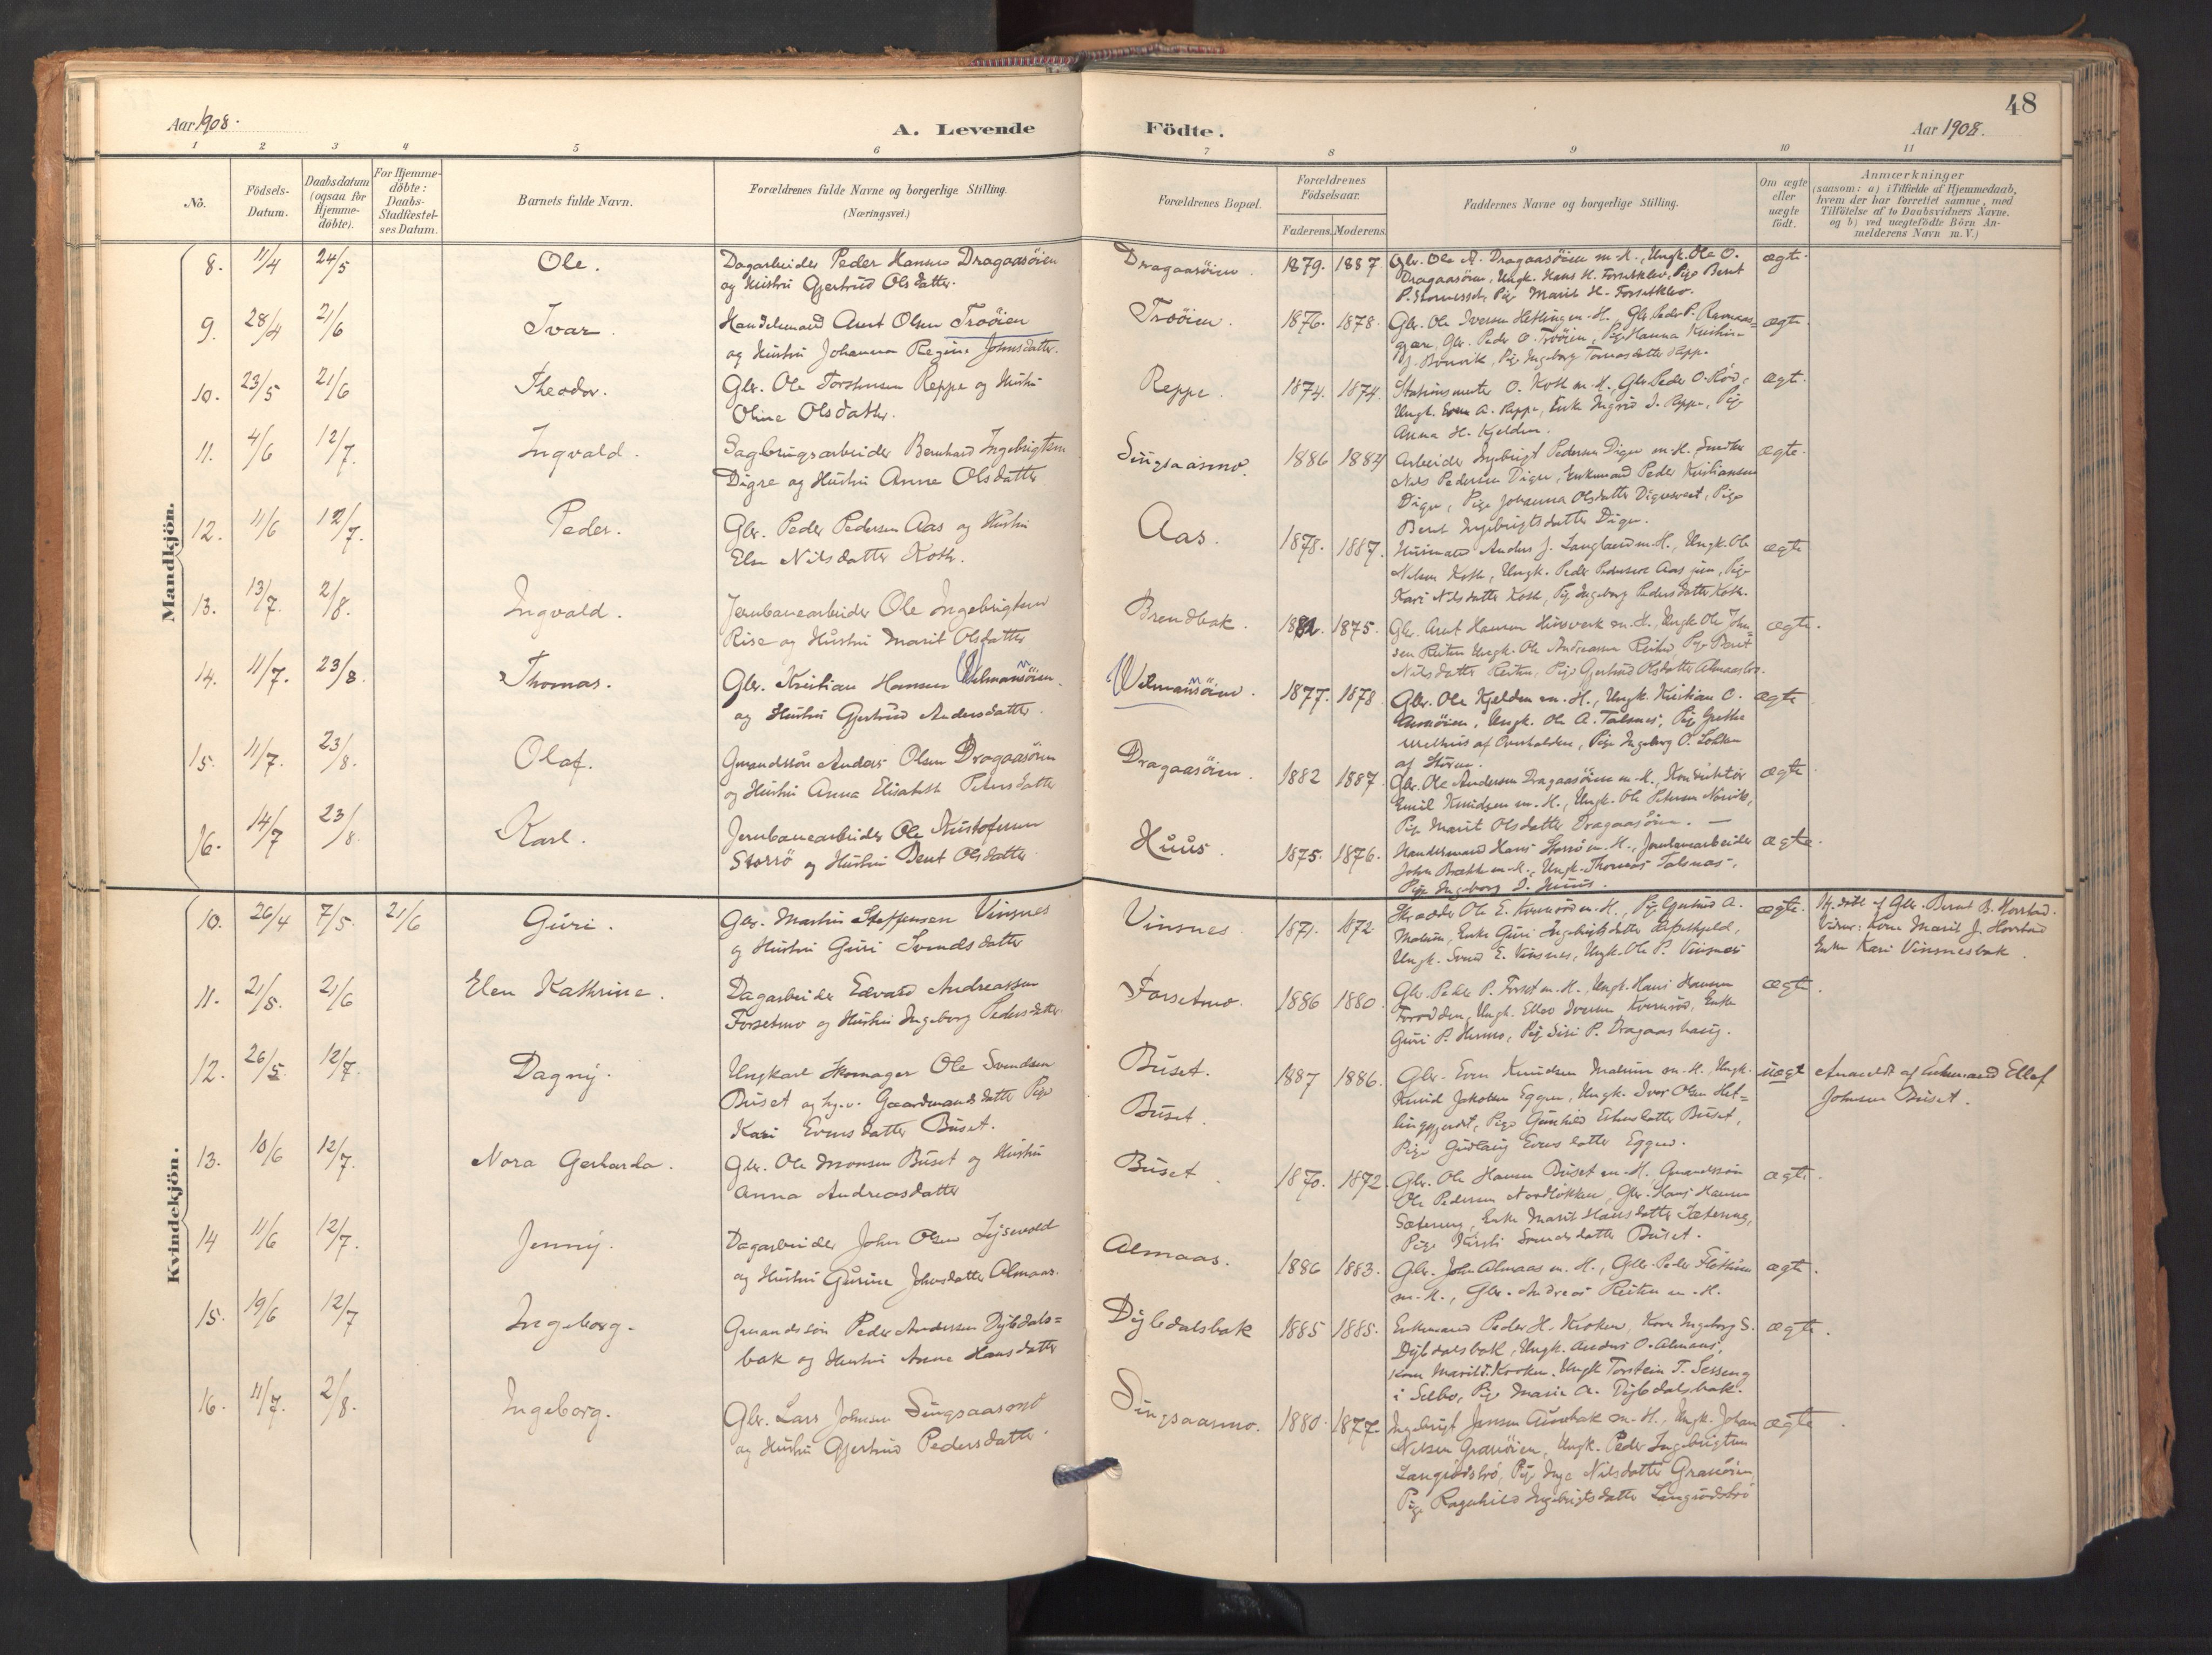 48
Aar 1908.
A. Levende
Födte.
Aar 1908.
1 2 3 4 5 6 7 8 9 10 11
No.
Födsels-
Datum.
Daabsdatum
(ogsaa for
Hjemme-
döbte).
For Hjemme-
döbte:
Daabs-
Stadfæstel-
ses Datum.
Barnets fulde Navn.
Forældrenes fulde Navne og borgerlige Stilling.
(Næringsvei.)
Forældrenes Bopæl.
Forældrenes
Födselsaar.
Faderens. Moderens.
Faddernes Navne og borgerlige Stilling.
Om ægte
eller
uægte
födt.
Anmærkninger
(saasom: a) i Tilfælde af Hjemmedaab,
hvem der har forrettet samme, med
Tilföielse af to Daabsvidners Navne.
og b) ved uægtefödte Börn An-
melderens Navn m. V.)
Mandkjön.
8. 11/4 24/5 Ole.
Dagarbeider Peder Hansen Dragaasöien
og Hustru Gjertrud Olsdatter.
Dragaasöien. 1879. 1887.
Gbr. Ole A. Dragaasöien m. H., Ungk. Ole O.
Dragaasöien, Ungk. Hans H. Forsetklev, Pige Beret
Pige Marit H. Forsetklev.
ægte.
9. 28/4 21/6 Ivar.
Handelsmand Arnt Olsen Troöien
og Hustru Johanna Regine Johnsdatter.
Troöien. 1876. 1878.
Gbr. Ole Iversen Hetling m. H., Gbr. Peder P.
Gbr. Peder O. Troöien, Pige Hanna
Pige Ingeborg Tomasdatter Reppe.
ægte.
10. 23/5 21/6 Theodor.
Gbr. Ole Torstensen Reppe og Hustru
Oline Olsdatter.
Reppe. 1874. 1874.
Stationsmester O. Koth m. H., Gbr. Peder O. Röd,
Ungk. Even A. Reppe, Enke Ingrid J. Reppe, Pige
Anna H. Kjelden.
ægte.
11. 4/6 12/7. Ingvald.
Sagbrugsarbeider Bernhard Ingebrigtsen
Digre og Hustru Anne Olsdatter
Singsaasmo. 1886 1884
Arbeider Ingebrigt Pedersen Digre m. H., Smeder
Nils Pedersen Digre, Enkemand Peder Kristiansen
Digre, Pige Johanna Olsdatter Pige
Beret Ingebrigtsdatter Digre.
ægte.
12. 11/6 12/7. Peder.
Gbr. Peder Pedersen Aas og Hustru
Else Nilsdatter Koth.
Aas. 1878. 1887.
Husmand Anders J. Langland m. H., Ungk. Ole
Nilsen Koth, Ungk. Peder Pedersen Aas jun, Pige
Kari Nilsdatter Koth, Pige Ingeborg Pedersdatter Koth.
ægte
13. 13/7. 2/8. Ingvald.
Jernbanearbeider Ole Ingebrigtsen
Rise og Hustru Marit Olsdatter
Brendbak. 1882. 1875.
Gbr. Arnt Hansen m. H., Ungk. Ole Joh
sen Reiten Ungk. Ole Andreasen Reiten, Pige Beret
Nilsdatter Reiten, Pige Gjertrud Olsdatter Almaasbro.
ægte.
14. 11/7. 23/8. Thomas.
Gbr. Kristian Hansen Wilmansöien.
og Hustru Gjertrud Andersdatter.
Wilmansöien. 1877. 1878
Gbr. Ole Kjelden m. H., Ungk. Kristian O.
Ungk. Ole A. Talsnes, Pige Grethe
af Overhalden, Pige Ingeborg O. Løkken
af Stören.
ægte
15. 11/7. 23/8. Olaf.
Gmandssön Anders Olsen Dragaasöien
og Hustru Anna Elisabeth Petersdatter
Dragaasöien. 1882 1887.
Gbr. Ole Andersen Dragaasöien m. H., Konduktör
Emil Knudsen m. H., Ungk. Ole Petersen
Pige Marit Olsdatter Dragaasöien. —
ægte
16. 14/7 23/8. Karl.
Jernbanearbeider Ole Kristofersen
Storrö og Hustru Beret Olsdatter
Huus. 1875. 1876.
Handelsmand Hans Storrö m. H., Jernbanearbeider
John m. H., Ungk. Thomas Talsnes,
Pige Ingeborg J. Huus.
ægte.
Kvindekjön.
10. 26/4 7/5. 21/6 Guri.
Gbr. Martin Steffensen Vinsnes
og Hustru Guri Svendsdatter
Vinsnes. 1871. 1872.
Skrædder Ole E. Kvernröd m. H., Pige Gjertrud A.
Enke Guri Ingebrigtsdatter
Ungk. Svend E. Vinsnes, Ungk. Ole P. Vinsnes
ægte.
Hj. döbt af Gbr. Bernt B. Hovstad.
Vidner: Kone Marit J. Hovstad
Enke Kari Vinsnesbak.
11. 21/5. 21/6 Elen Kathrine.
Dagarbeider Edvard Andreassen
Forsetmo og Hustru Ingeborg Pedersdatter.
Forsetmo. 1886 1880.
Gbr. Peder P. Forset m. H., Ungk. Hans Hansen
Ungk. Ellev Iversen Kvernröd, Enke
Guri P. Pige Siri P. Dragaashaug.
ægte.
12. 26/5. 12/7. Dagny.
Ungkarl Skomager Ole Svendsen
Buset og Gaardmandsdatter Pige
Kari Evensdatter Buset.
Buset.
Buset. 1887 1886.
Gbr. Even Knudsen m. H., Ungk.
Knud Jakobsen Eggen, Ungk. Ivar Olsen Het-
linggjerdt, Pige Gunhild Buset,
Pige Gudlaug Evensdatter Eggen.
uægt
Anmeldt af Enkemand Ellef
Johnsen Buset.
13. 10/6 12/7. Nora Gerharda.
Gbr. Ole Monsen Buset og Hustru
Anna Andreasdatter
Buset. 1870. 1872.
Gbr. Ole Hansen Buset m. H., Gmandssön
Ole Pedersen Nordlökken, Gbr. Hans Hansen
Sætereng, Enke Marit Hansdatter Sætereng,
Pige Kirsti Svendsdatter Buset.
ægte.
14 11/6 12/7. Jenny.
Dagarbeider John Olsen
og Hustru Gurine Johnsdatter Almaas.
Almaas. 1886 1883.
Gbr. John Almaas m. H., Gbr. Peder
m. H., Gbr. Andreas Reiten m. H.
ægte.
15. 19/6 12/7 Ingeborg.
Gmandssön Peder Andersen Dybdals=
bak og Hustru Anne Hansdatter
Dybdalsbak 1885 1885.
Enkemand Peder H. Kroken, Kone Ingeborg S.
Dybdalsbak, Ungk. Anders O. Almaas,
Kone Marit Kroken, Ungk. Torstein T. Sesseng
i Selbo, Pige Marie A. Dybdalsbak.
ægte.
16. 11/7. 2/8. Ingeborg.
Gbr. Lars Johnsen Singsaasmo
og Hustru Gjertrud Pedersdatter.
Singsaasmo. 1880. 1877.
Ingebrigt Jensen m. H., Ungk. Johan
Nilsen Granöien, Ungk. Peder Ingebrigtsen
Pige Inga Nilsdatter Granöien,
Pige Ragnhild Ingebrigtsdatter
ægte